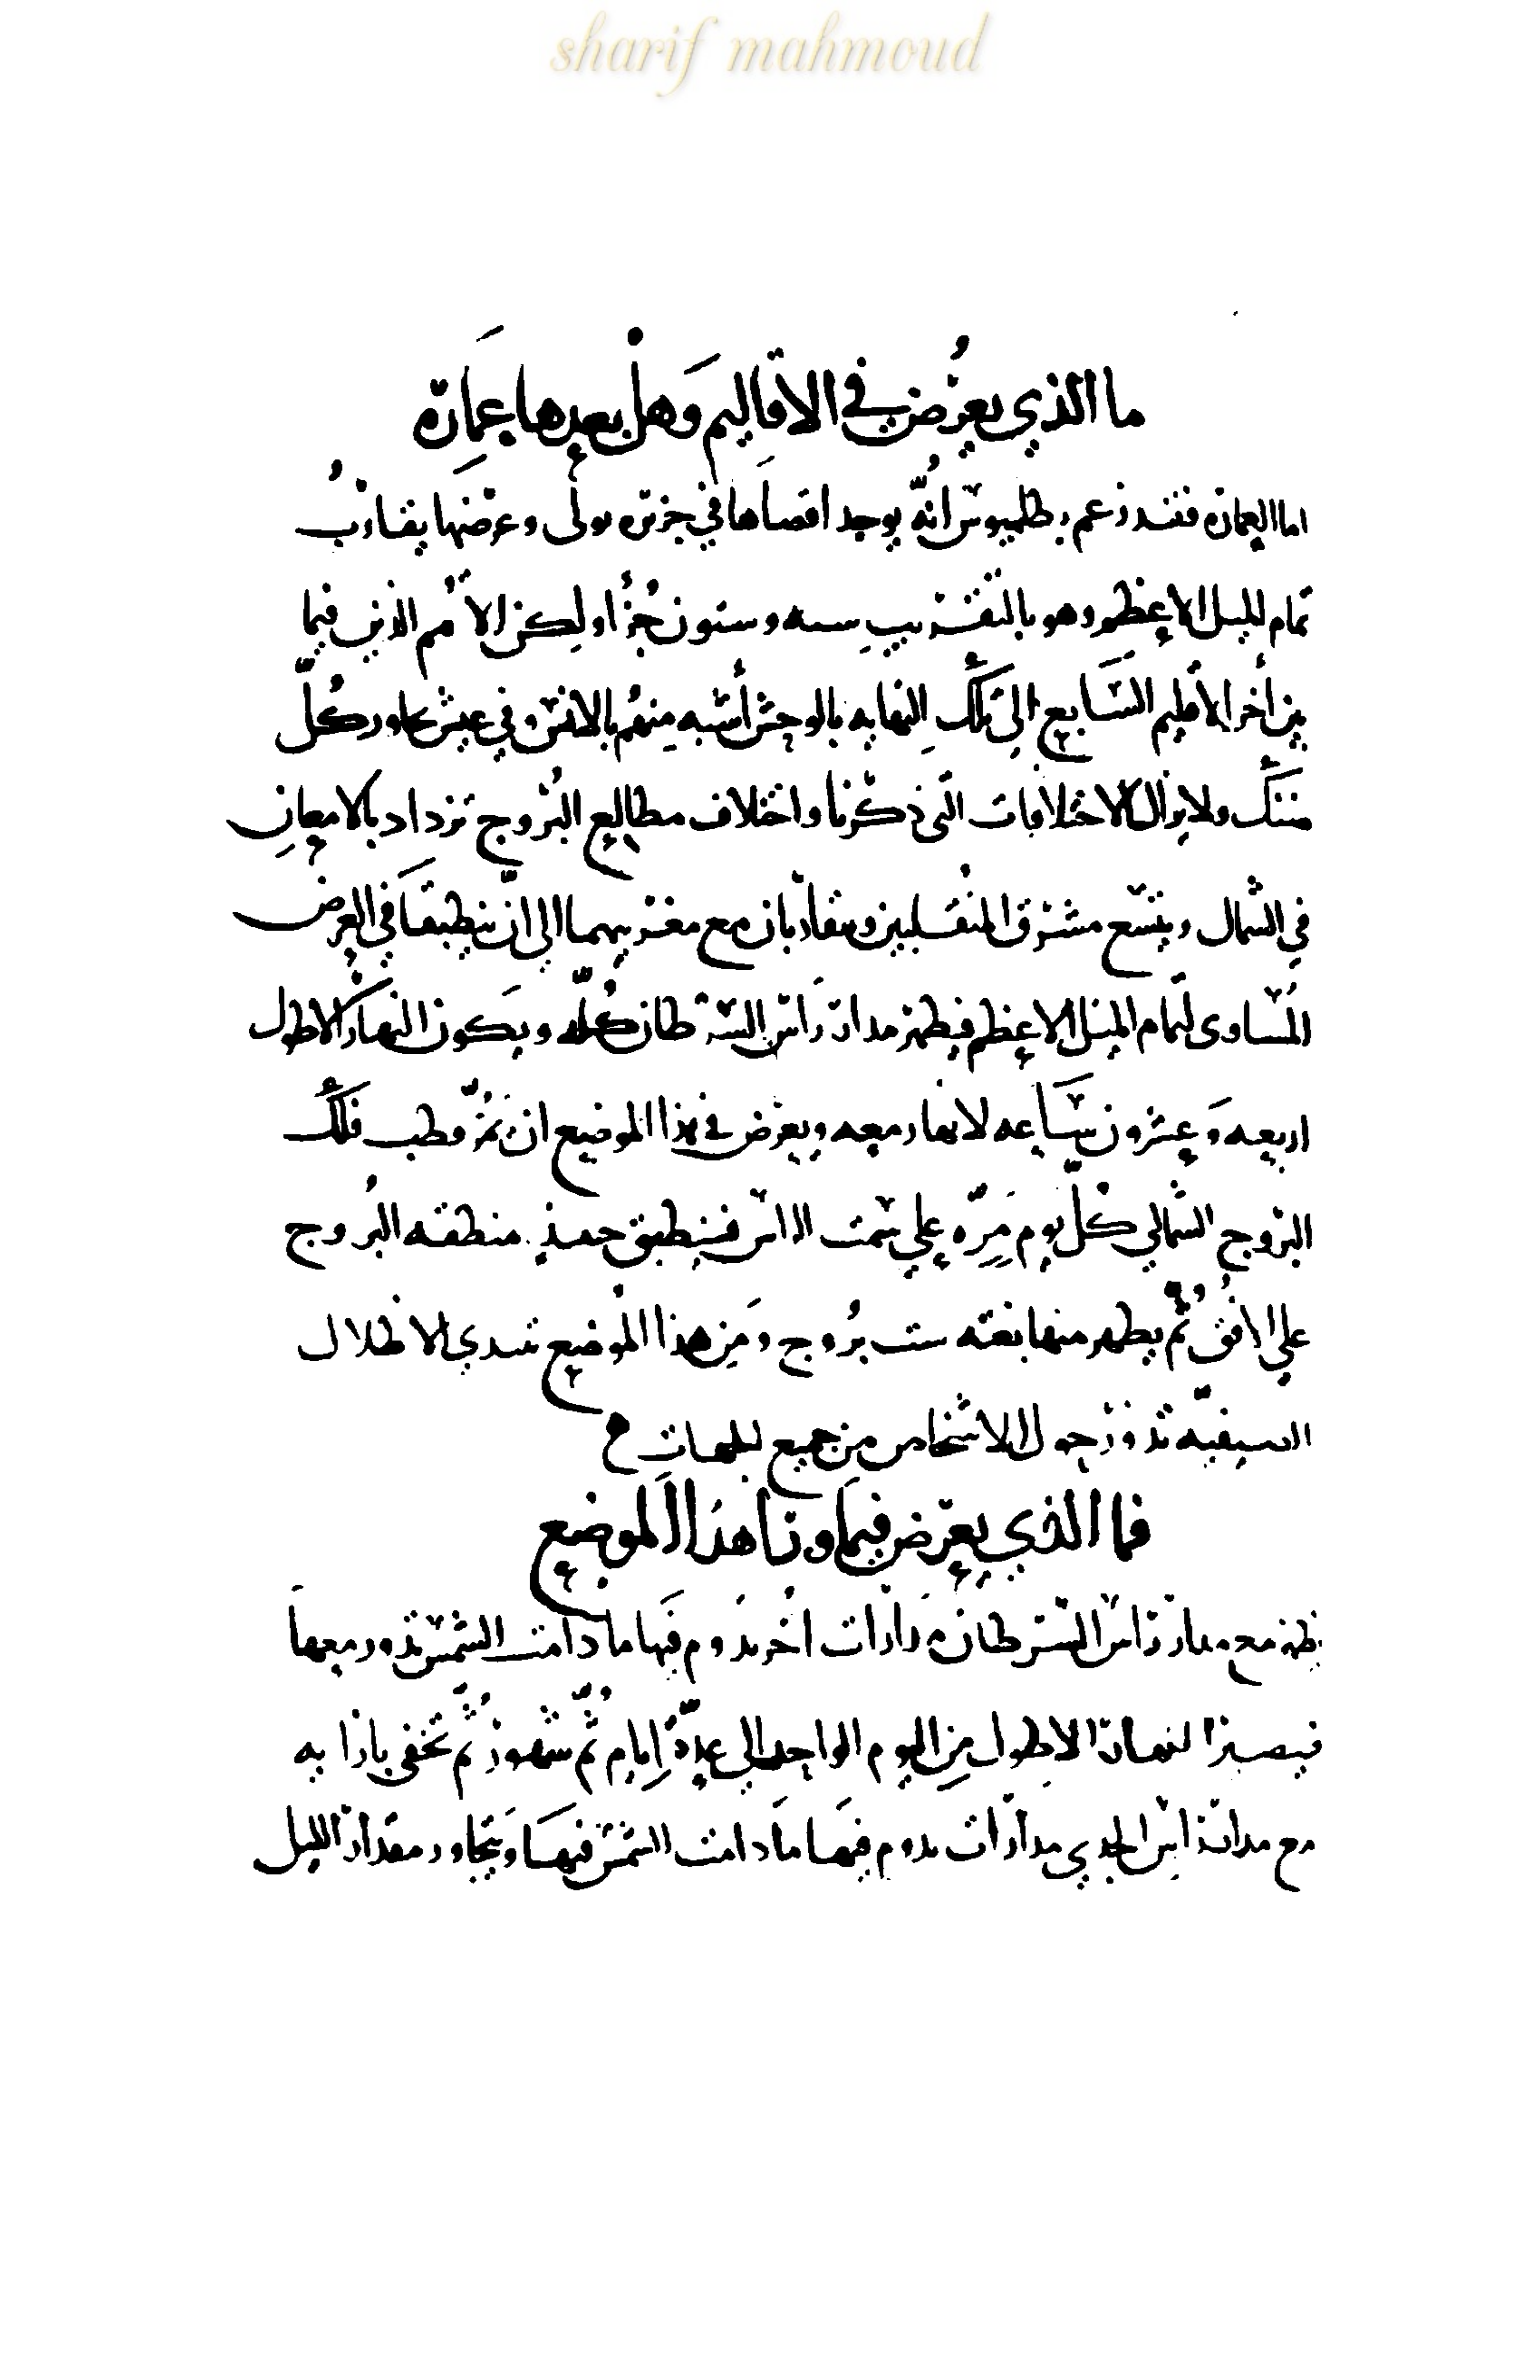 sharif mahmoud
ما الذي يعرض في الاقاليم وهل بعدها عمارة
اما العمارة فقد زعم بطلميوس انه يوجد اقصاها في جزيرة ثولى وعرضها يقارب
تمام الميل الاعظم وهو بالتقريب ستة وستون جزأ ولكن الامم الذين فيما
بين أخر الاقليم السابع الى تلك النهاية بالوحش أشبه منهم بالانس وفي عيش كل
ضنك ولا يزال الاختلافات التى ذكرنا واختلاف مطالع البروج تزداد بالامعان
في الشمال ويتسع مشرق المنقلبين ويتقاربان مع مغربيهما الي ان ينطبقا في العرض
المساوى لتمام الميل الاعظم فيظهر مدار رأس السرطان كله ويكون النهار الاطول
اربعة وعشرون ساعة لا نهار معه ويعرض في هذا الموضع ان يمر قطب فلك
البروج الشمالي كل يوم مرة علي سمت الراس فينطبق حينئذ منطقة البروج
علي الافق ثم يظهر منها بغتة ست بروج ومن هذا الموضع تبتدي الاظلال
الصيفية تدور حول الاشخاص من جميع الجهات
فما الذي يعرض فيما وراء هذا الموضع
يظهر مع مدار رأس السرطان مدارات أخر يدوم فيها ما دامت الشمس تدور معها
فيصير النهار الاطول من اليوم الواحد الي عدة ايام ثم شهور ثم تخفى بازايه
مع مدار رأس الجدي مدارات يدوم فيها ما دامت الشمس فيها ويتجاوز مقدار الليل